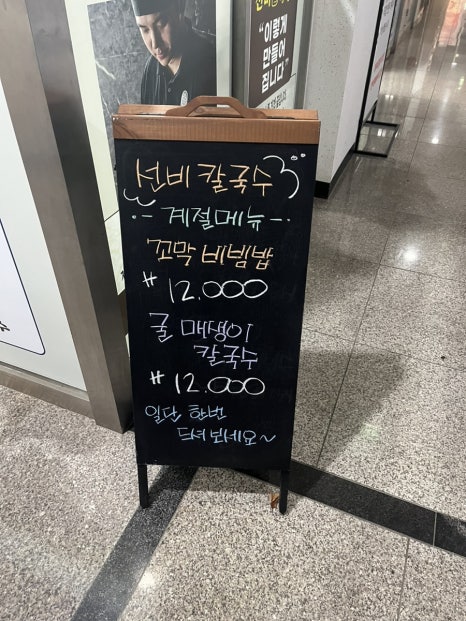 "이렇게
만들어
집니다"
선비 칼국수
계절메뉴
꼬막 비빔밥
₩ 12.000
굴 매생이
칼국수
₩ 12.000
일단 한번
드셔보세요~